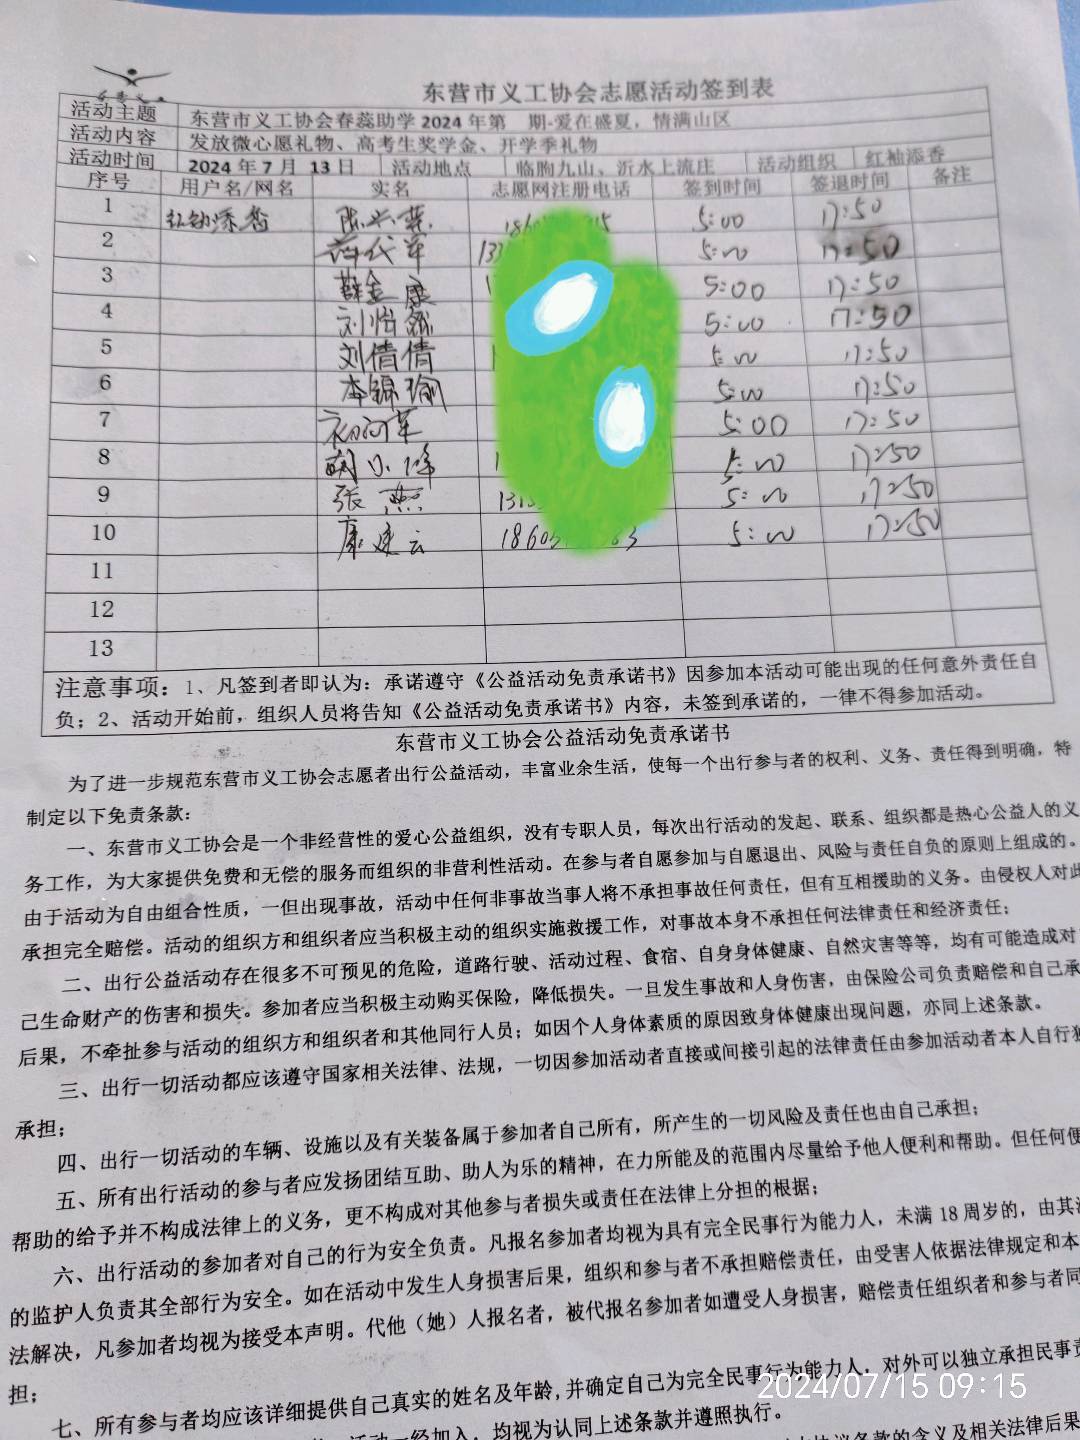 东营义工
东营市义工协会志愿活动签到表
活动主题 东营市义工协会春蕊助学2024年第 期-爱在盛夏，情满山区
活动内容 发放微心愿礼物、高考生奖学金、开学季礼物
活动时间 2024年7月 13日 活动地点 临朐九山、沂水上流庄 活动组织 红袖添香
序号 用户名/网名 实名 志愿网注册电话 签到时间 签退时间 备注
1 红袖添香 5:00 17:50
2 5:00 17:50
3 薛金康 5:00 17:50
4 刘怡 5:00 17:50
5 刘倩倩 5:00 17:50
6 李锦瑜 5:00 17:50
7 5:00 17:50
8 5:00 17:50
9 张燕 5:00 17:50
10 康建云 5:00 17:50
11
12
13
注意事项：1、凡签到者即认为：承诺遵守《公益活动免责承诺书》因参加本活动可能出现的任何意外责任自
负；2、活动开始前，组织人员将告知《公益活动免责承诺书》内容，未签到承诺的，一律不得参加活动。
东营市义工协会公益活动免责承诺书
为了进一步规范东营市义工协会志愿者出行公益活动，丰富业余生活，使每一个出行参与者的权利、义务、责任得到明确，特
制定以下免责条款：
一、东营市义工协会是一个非经营性的爱心公益组织，没有专职人员，每次出行活动的发起、联系、组织都是热心公益人的义
务工作，为大家提供免费和无偿的服务而组织的非营利性活动。在参与者自愿参加与自愿退出、风险与责任自负的原则上组成的。
由于活动为自由组合性质，一但出现事故，活动中任何非事故当事人将不承担事故任何责任，但有互相援助的义务。由侵权人对此
承担完全赔偿。活动的组织方和组织者应当积极主动的组织实施救援工作，对事故本身不承担任何法律责任和经济责任；
二、出行公益活动存在很多不可预见的危险，道路行驶、活动过程、食宿、自身身体健康、自然灾害等等，均有可能造成对
己生命财产的伤害和损失。参加者应当积极主动购买保险，降低损失。一旦发生事故和人身伤害，由保险公司负责赔偿和自己承
后果，不牵扯参与活动的组织方和组织者和其他同行人员；如因个人身体素质的原因致身体健康出现问题，亦同上述条款。
三、出行一切活动都应该遵守国家相关法律、法规，一切因参加活动者直接或间接引起的法律责任由参加活动者本人自行独
承担；
四、出行一切活动的车辆、设施以及有关装备属于参加者自己所有，所产生的一切风险及责任也由自己承担；
五、所有出行活动的参与者应发扬团结互助、助人为乐的精神，在力所能及的范围内尽量给予他人便利和帮助。但任何便
帮助的给予并不构成法律上的义务，更不构成对其他参与者损失或责任在法律上分担的根据；
六、出行活动的参加者对自己的行为安全负责。凡报名参加者均视为具有完全民事行为能力人，未满18周岁的，由其法
的监护人负责其全部行为安全。如在活动中发生人身损害后果，组织和参与者不承担赔偿责任，由受害人依据法律规定和本
法解决，凡参加者均视为接受本声明。代他（她）人报名者，被代报名参加者如遭受人身损害，赔偿责任组织者和参与者同
担；
七、所有参与者均应该详细提供自己真实的姓名及年龄,并确定自己为完全民事行为能力人，对外可以独立承担民事责
活动一经加入，均视为认同上述条款并遵照执行。
协议条款的含义及相关法律后果
2024/07/15 09:15